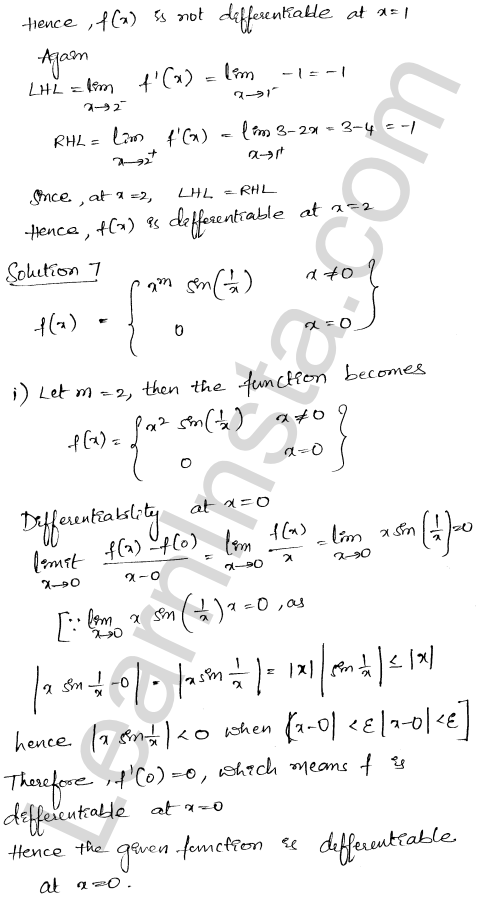 Hence, f(x) is not differentiable at x=1
Again
LHL = lim x→2⁻ f'(x) = lim x→1⁻ -1 = -1
RHL = lim x→2⁺ f'(x) = lim x→1⁺ 3-2x = 3-4 = -1
Since, at x=2, LHL = RHL
Hence, f(x) is differentiable at x=2
Solution 7
f(x) = { x^m sin(1/x) x≠0
0 x=0 }
i) Let m=2, then the function becomes
f(x) = { x² sin(1/x) x≠0
0 x=0 }
Differentiability at x=0
limit x→0 f(x)-f(0)/x-0 = lim x→0 f(x)/x = lim x→0 x sin(1/x)=0
[∵ lim x→0 x sin(1/x) x=0, as
|x sin 1/x -0| = |x sin 1/x| = |x| |sin 1/x| ≤ |x|
hence |x sin 1/x| < 0 when |x-0| < ε |x-0| < ε]
Therefore, f'(0)=0, which means f is
differentiable at x=0
Hence the given function is differentiable
at x=0.
LearnInsta.com